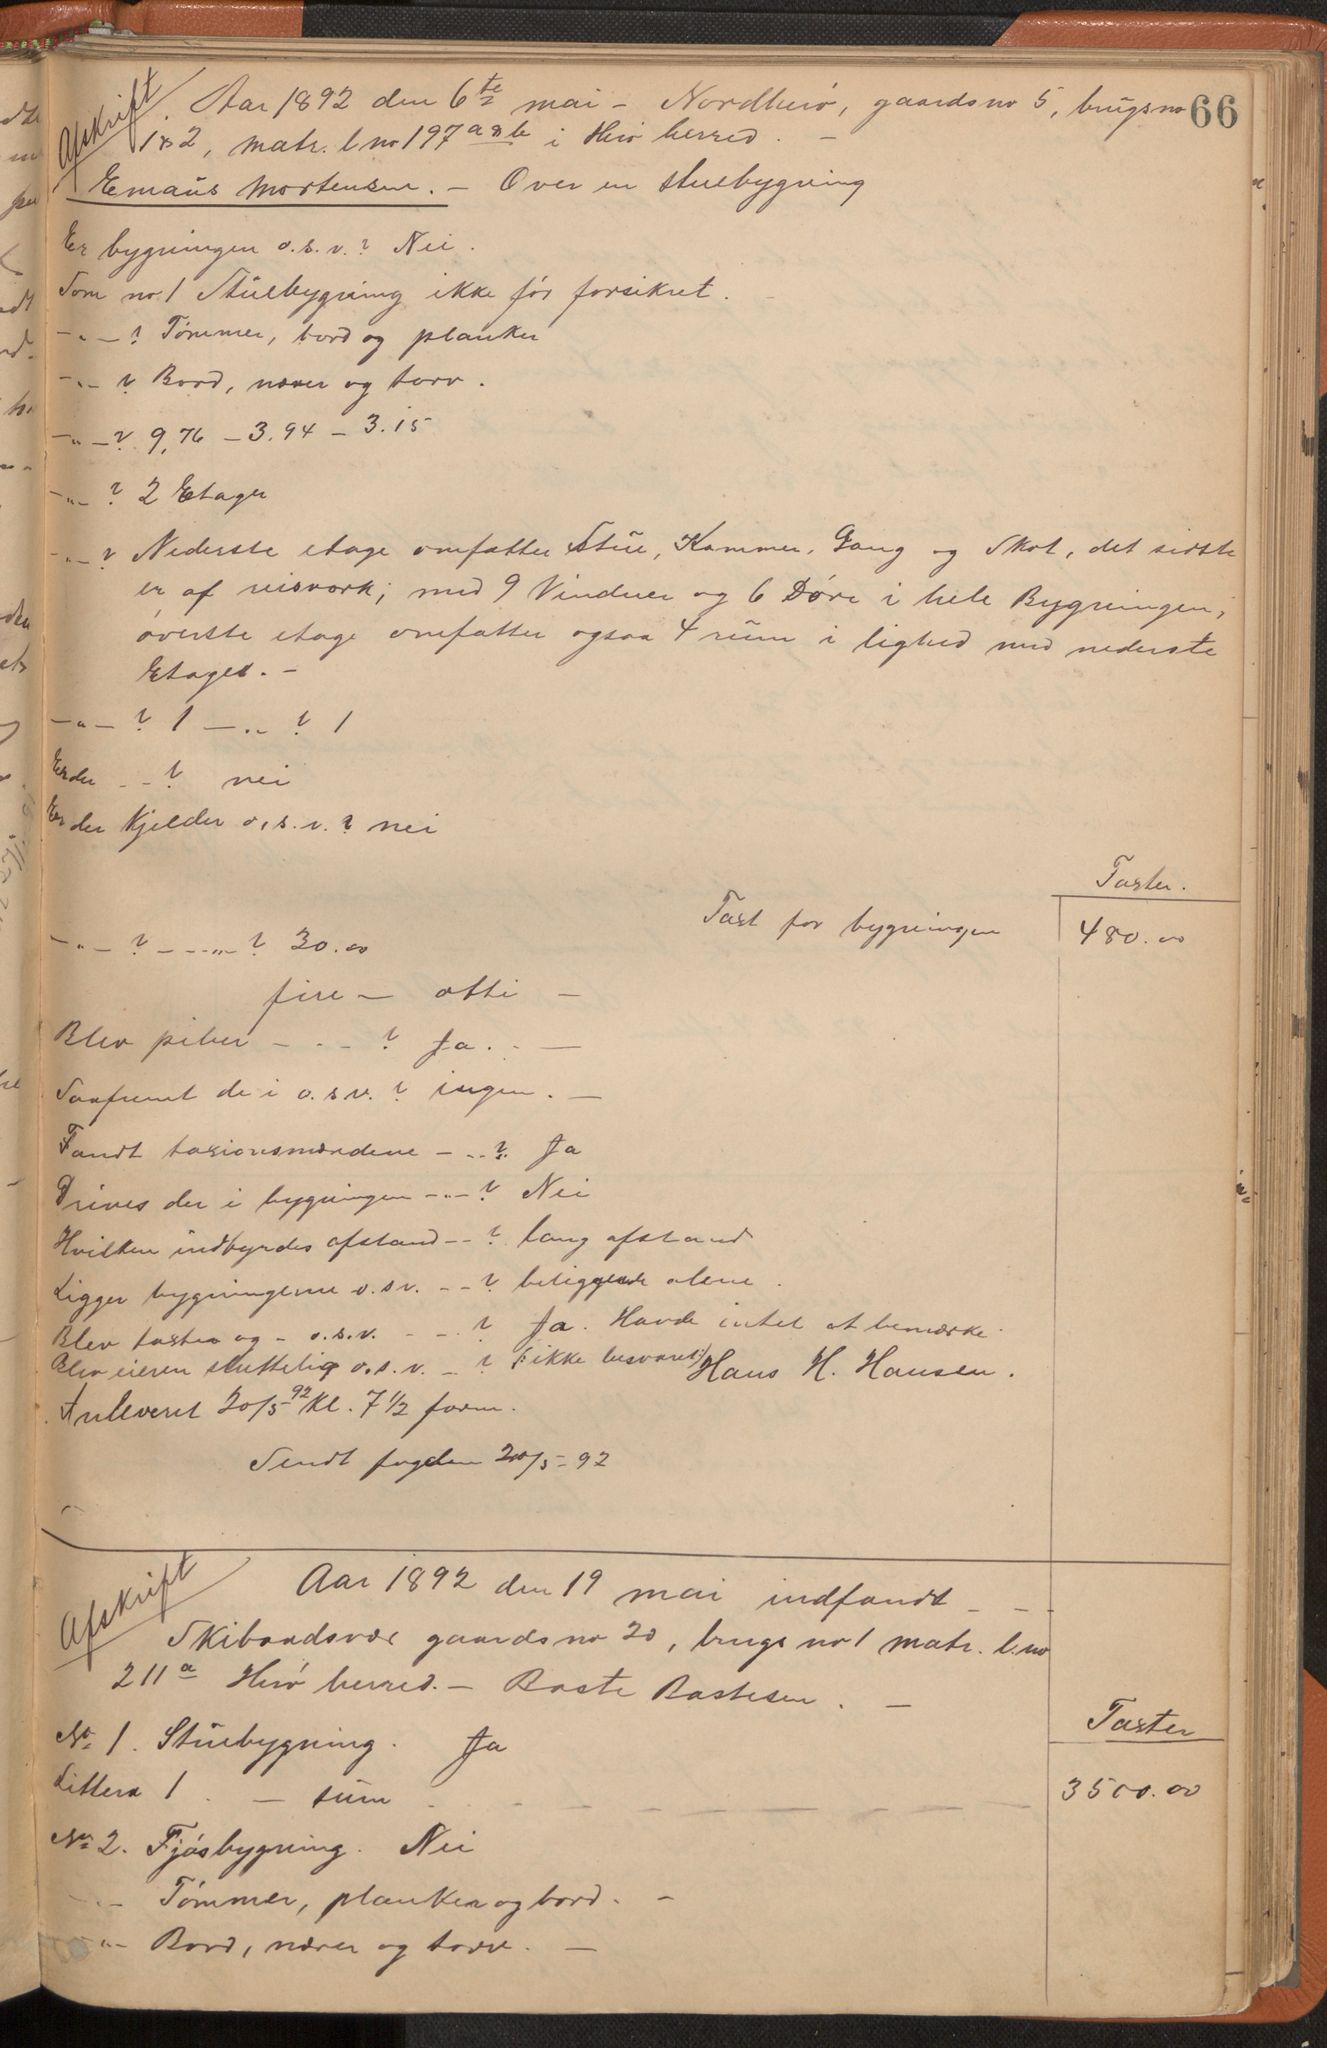 66
Afskrift
Aar 1892 den 6te mai – Nordherø, gaardsno 5, brugsno
1 & 2, matr. l no 197 a & b i Herø herred. –
Emaus Mortensen. – Over en stuebygning
Er bygningen o.s.v.? Nei.
Som no 1 Stuebygning ikke før forsikret.
– „ – ? Tømmer, bord og planker
– „ – ? Bord, næver og torv.
– „ – ? 9,76 – 3.94 – 3.15
– „ – ? 2 Etager
– „ – ? Nederste etage omfatter Stue, Kammer, Gang og Skot, det sidste
er af reisverk; med 9 Vinduer og 6 Døre i hele Bygningen,
øverste etage omfatter ogsaa 4 rum i lighed med nederste
Etages. –
– „ – ? 1 – „ ? 1
Er der – – ? nei
Er der Kjelder o.s.v.? nei
Taxter.
Taxt for bygningen 480.00
– „ – ? – – „ – ? 30.00
fire – otti –
Blev piber – – – ? Ja. –
Saafremt de i o.s.v.? ingen. –
Fandt taxionsmændene – „ ? Ja
Drives der i bygningen – „ – ? Nei
Hvilken indbyrdes afstand – – ? lang afstand
Ligger bygningerne o.s.v. – – ? beliggende alene.
Blev taxten og – o.s.v. – – ? Ja. Havde intet at bemærke.
Blev eieren sluttelig o.s.v. – ? (: ikke besvaret:) Hans H. Hansen.
Anleveret 20/5 92 Kl. 7 1/2 form.
Sendt fogden 20/5 – 92
Afskrift
Aar 1892 den 19 mai indfandt – – –
Skibaadsvær gaards no 20, brugs no 1 matr. l. no
211 a Herø herred. – Baste Bastesen. –
Taxter
No 1. Stuebygning. Ja
Littera 1. – sum – – – – 3500.00
No 2. Fjøsbygning. Nei
– „ – Tømmer, planker og bord. –
– „ – Bord, næver og torv. –